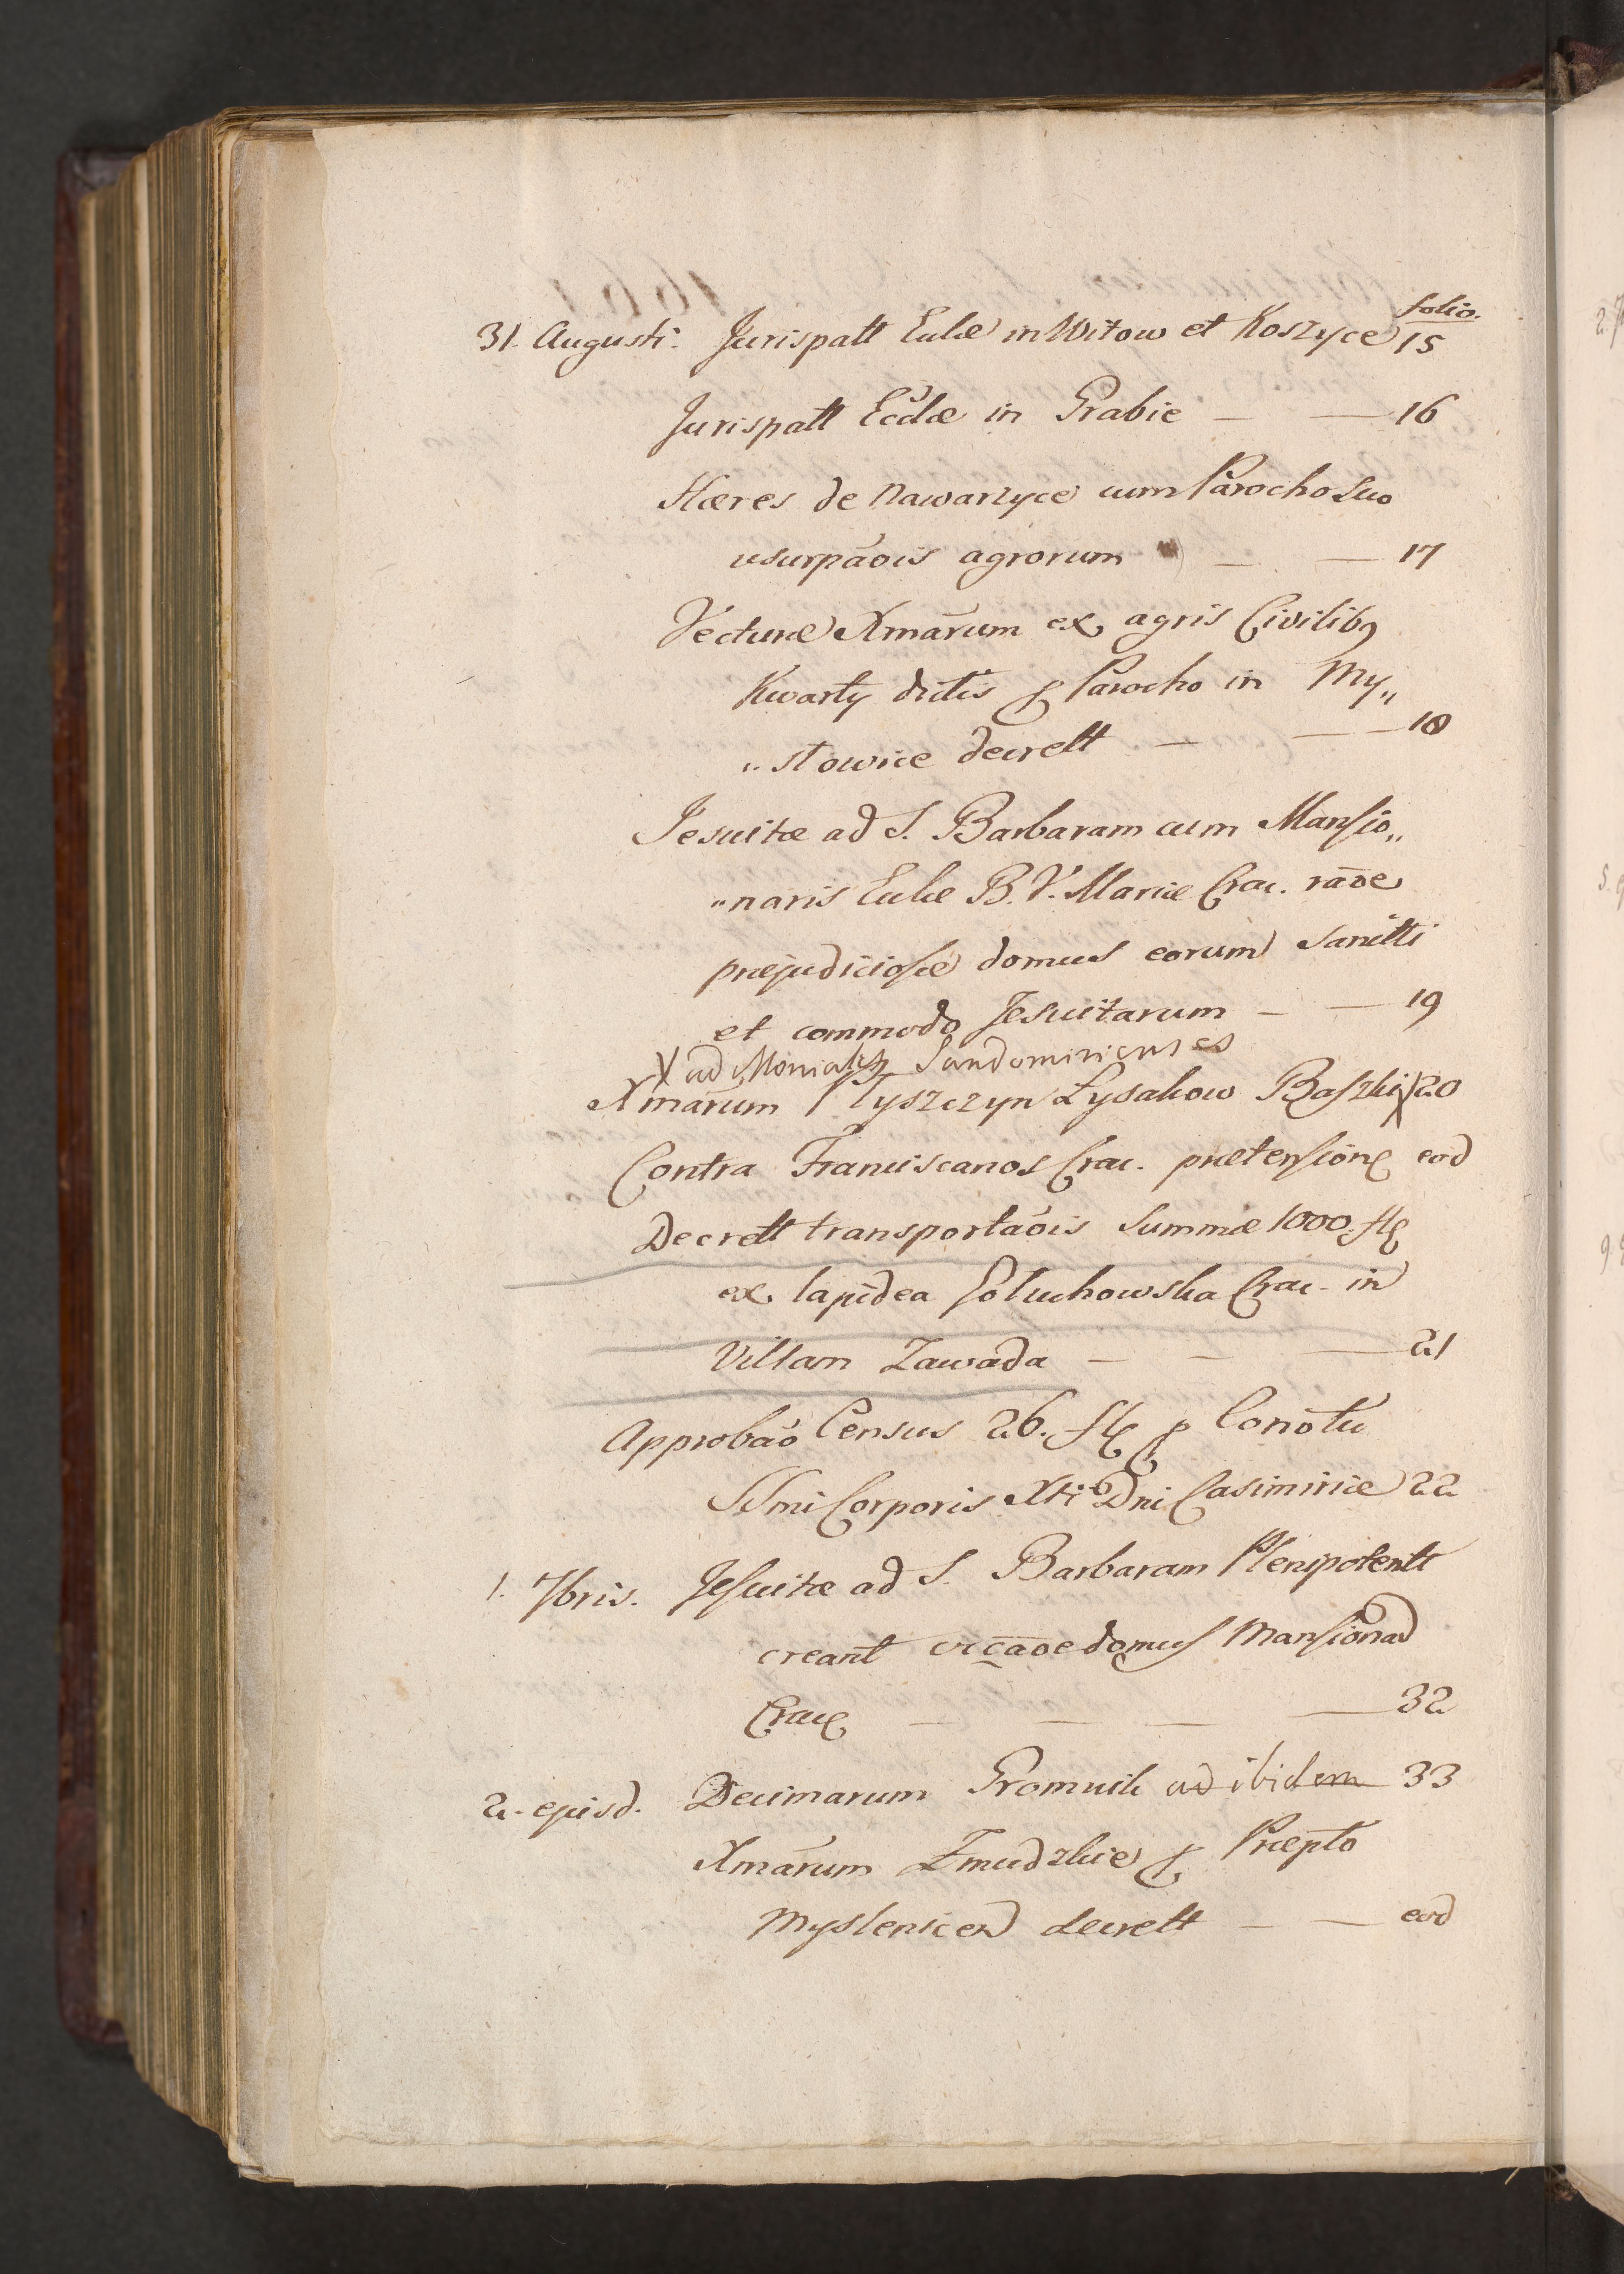 folio.
31. Augusti. Jurispatt Eccłæ in Witow et Koszyce 15
Jurispatt Eccłæ in Grabie — — 16
Hæres de Nawarzyce cum Parocho suo
usurpāois agrorum — — 17
Vecturæ Xmārum ex agris Civilibꝯ
Kwarty dictis ꝑ Parocho in My„
„stowice decrett — — — 18
Jesuitæ ad S. Barbaram cum Mansio„
„naris Eccłæ B. V. Mariæ Crac. rāoe
præjudiciosæ domus eorum sanitti
et commodo Jesuitarum — — 19
X ad Moniales Sandomirienses
Xmārum Tyszczyn Łysakow Baszki X 20
Contra Franciscanos Crac. prætensionꝭ eod
Decrett transportāois Summæ 1000. flꝭ
ex lapidea Goluchowska Crac. in
Villam Zawada — — — 21
Approbāo Census 26. flꝭ ꝑ Conōtu
SSmi Corporis Xti Dni Casimiriæ 22
1. 7bris. Jesuitæ ad S. Barbaram Plenipotentt
creant vicāoe domus Mansionad
Cracꝭ — — — — 32
2. ejusd. Decimarum Gromnik ad ibidem 33
Xmārum Zmudzkie ꝑ Præpto
Myslenicen decrett — — eod